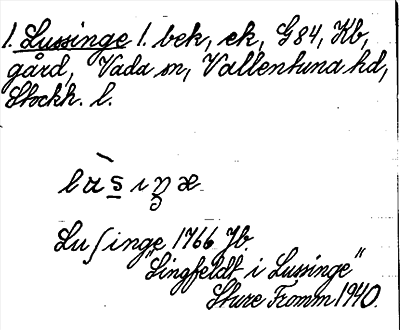 1. Lussinge l. bek, ek, G84, Kb,
gård, Vada sn, Vallentuna hd,
Stockh. l.
Luſinge 1766 Jb.
"Lingfeldt i Lussinge"
Sture Fromm 1940.